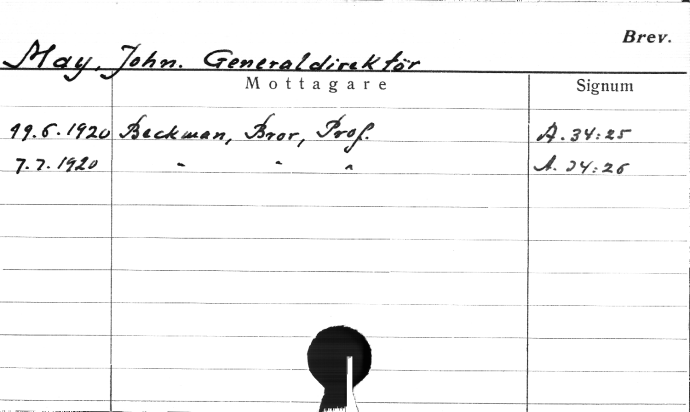 Brev.
May, John. Generaldirektör
Mottagare Signum
19.6.1920 Beckman, Bror, Prof. A.34:25
7.7.1920 " " " A.34:26